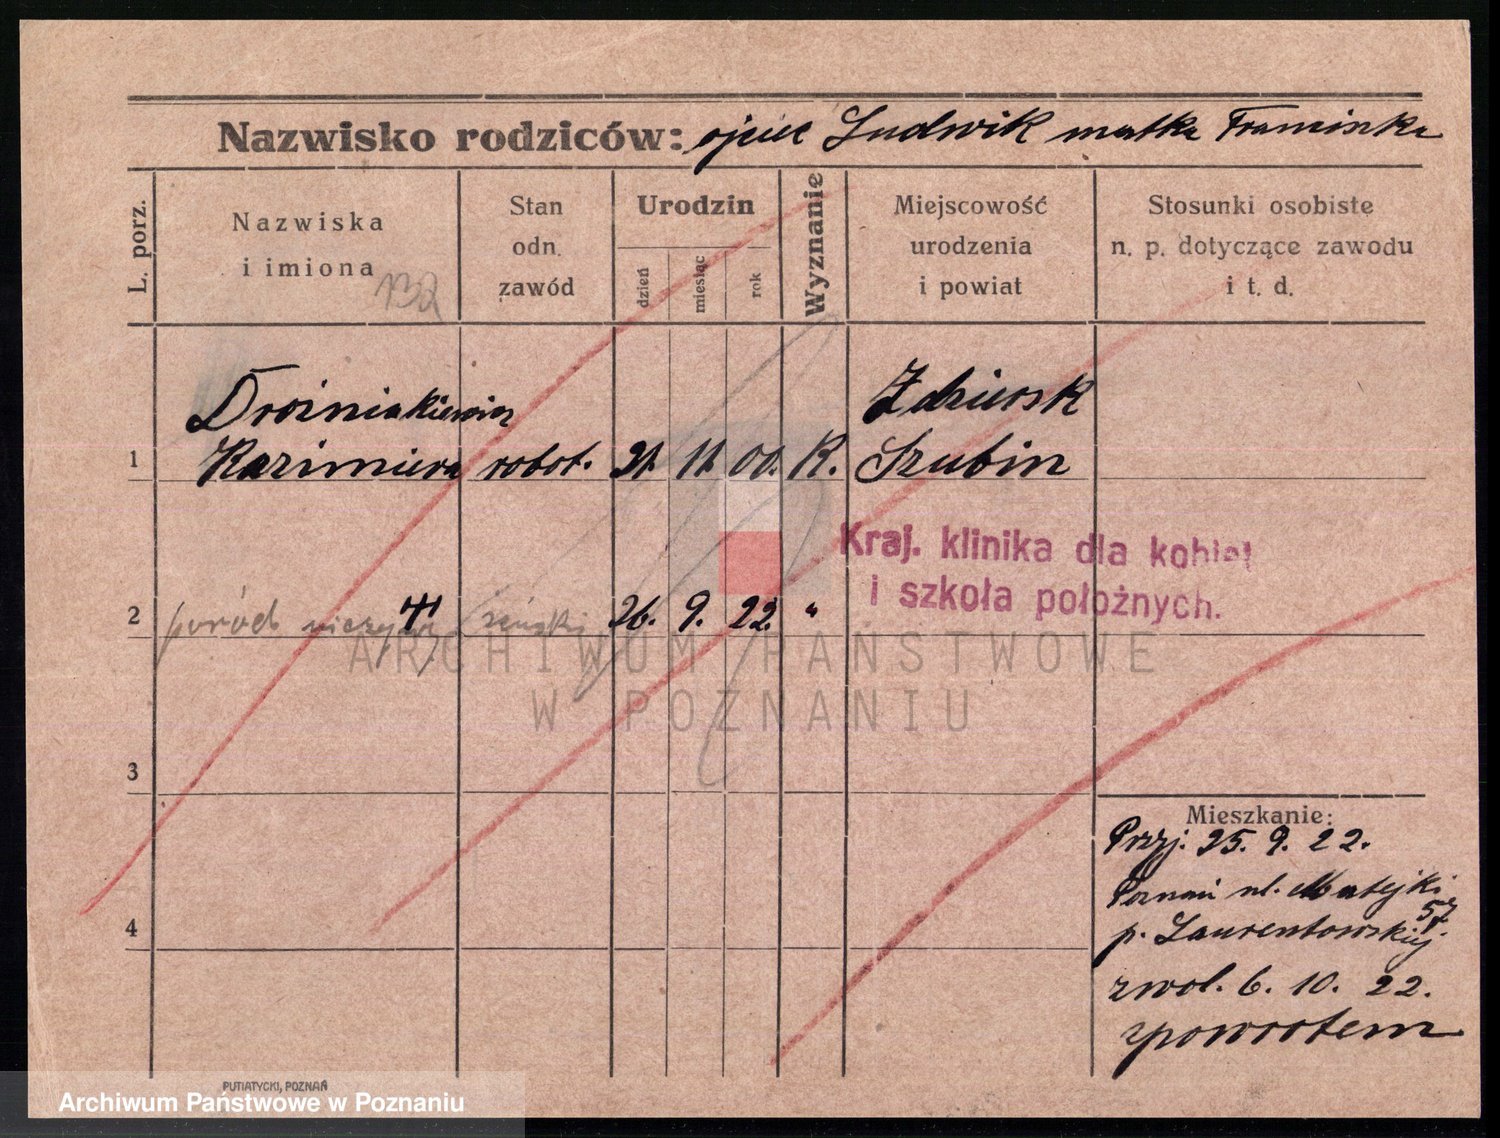 Nazwisko rodziców: ojciec Ludwik matka Franciszka
L. porz.
Nazwiska
i imiona
132
Stan
odn.
zawód
Urodzin
dzień
miesiąc
rok
Wyznanie
Miejscowość
urodzenia
i powiat
Stosunki osobiste
n. p. dotyczące zawodu
i t. d.
Zdziersk
1 Kazimiera robot. 21. 11. 00. R. Szubin
Kraj. klinika dla kobiet
i szkoła położnych.
2 poród 26. 9. 22. "
ARCHIWUM PAŃSTWOWE
W POZNANIU
3
Mieszkanie:
Przyj. 25. 9. 22.
Poznań ul. Matejki
57
4 p. Laurentowskiej.
zwol. 6. 10. 22.
zpowrotem
PUTIATYCKI, POZNAŃ
Archiwum Państwowe w Poznaniu